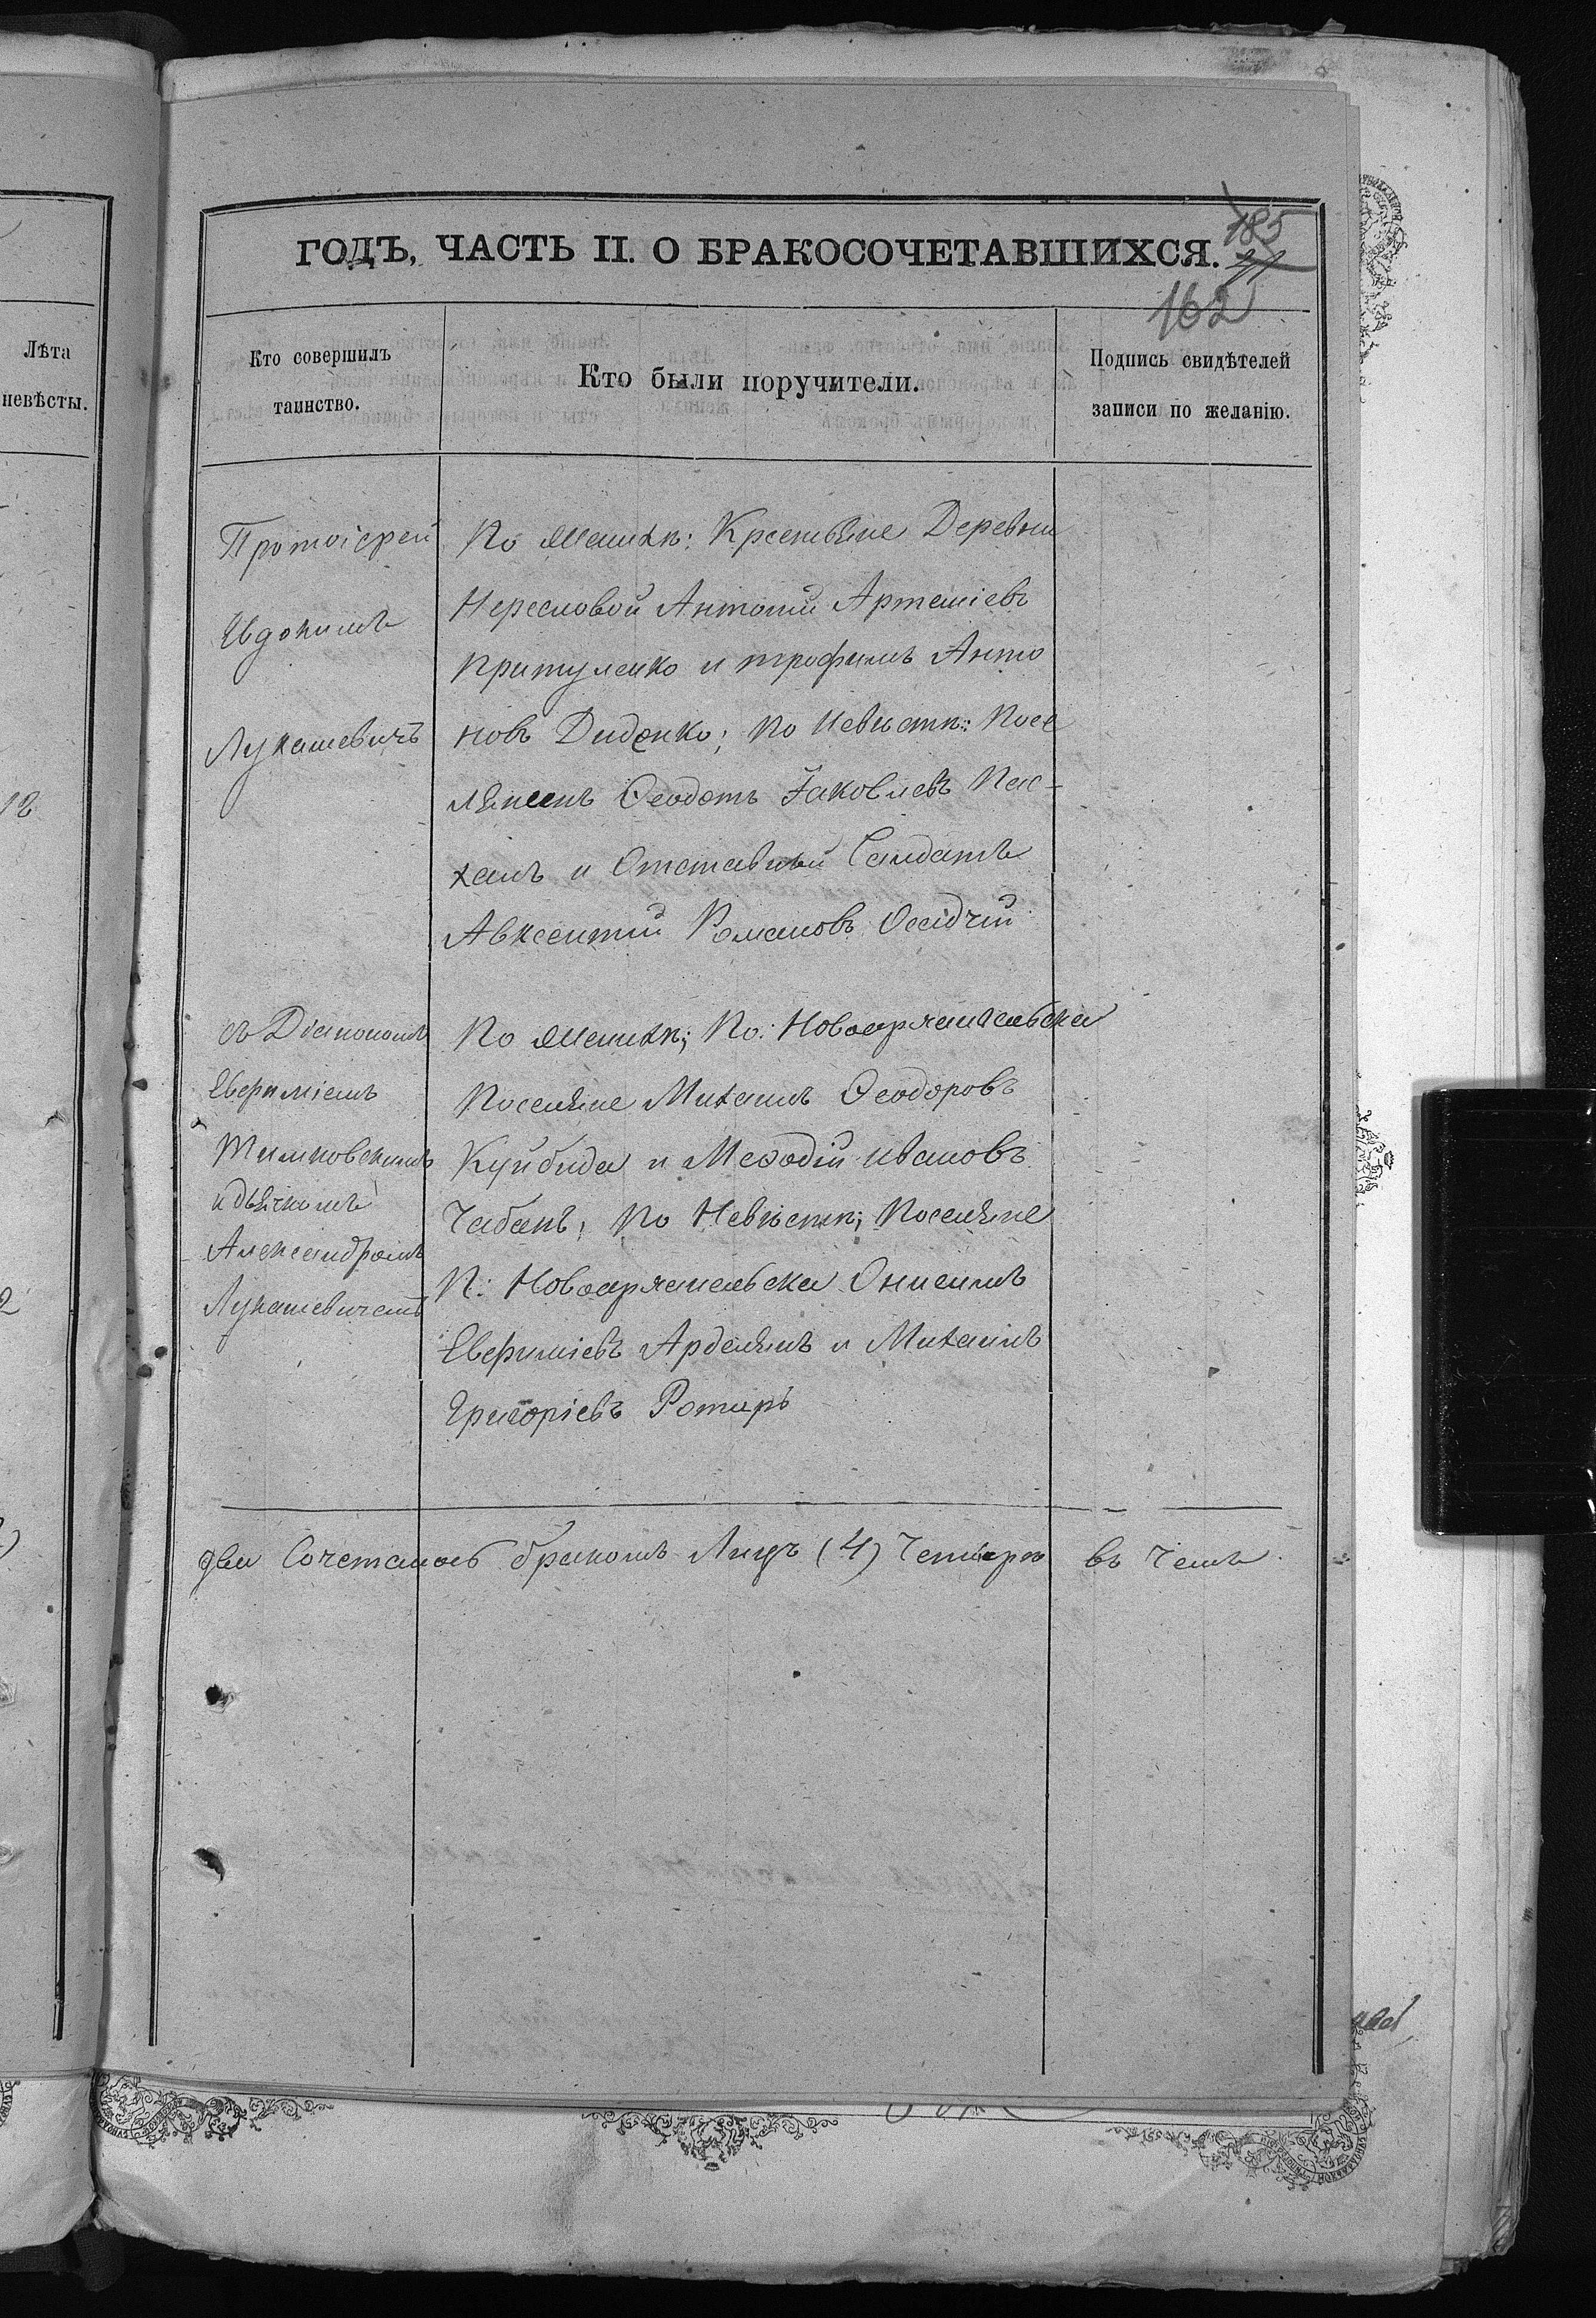 ГОДЪ, ЧАСТЬ II. О БРАКОСОЧЕТАВШИХСЯ.
185
162
Лѣта
невѣсты.
Кто совершилъ
таинство.
Кто были поручители.
Подпись свидѣтелей
записи по желанію.
Протоіерей
Евдокимъ
Лукашевичъ
По Женихѣ: Крестьяне Деревни
Нересловой Антоній Артеміевъ
Притуленко и трофимъ Анто
новъ Диденко; по Невѣстѣ: Посе
лянинъ Ѳеодотъ Іаковлевъ Пас-
халъ и Отставный Салдатъ
Авксентій Романовъ Осадчій
12
съ Діакономъ
Евфиміемъ
Тимковскимъ
и дьячкомъ
Александромъ
Лукашевичемъ
По Женихѣ; По: Новоархангельска
Поселяне Михаилъ Ѳеодоровъ
Куйбида и Меѳодій Ивановъ
Чабанъ; по Невѣстѣ; Поселяне
П: Новоархангельска Онисимъ
Евфиміевъ Арделянъ и Михаилъ
Григоріевъ Ротарь
2
два Сочеталось бракомъ Лицъ (4) Четыре въ Чемъ